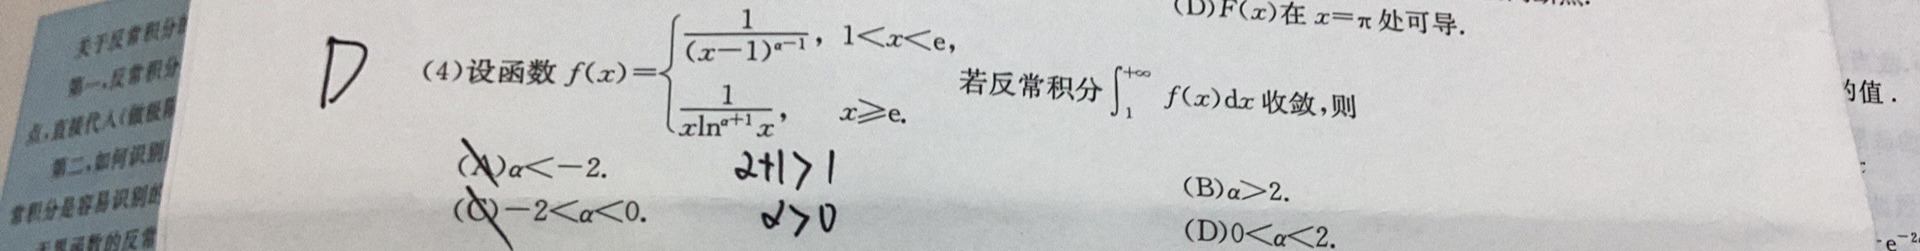 关于反常积分的
第一,反常积分
点,直接代入(做极限
第二,如何识别
常积分是容易识别的
无界函数的反常
(D)F(x)在 x=π 处可导.
D
(4)设函数 f(x)={ 1/(x-1)^{α-1}, 1<x<e,
1/(xln^{α+1}x), x≥e.
若反常积分∫_1^{+∞} f(x)dx 收敛,则
(A)α<-2.
α+1>1
(B)α>2.
(C)-2<α<0.
α>0
(D)0<α<2.
的值.
e^{-2}